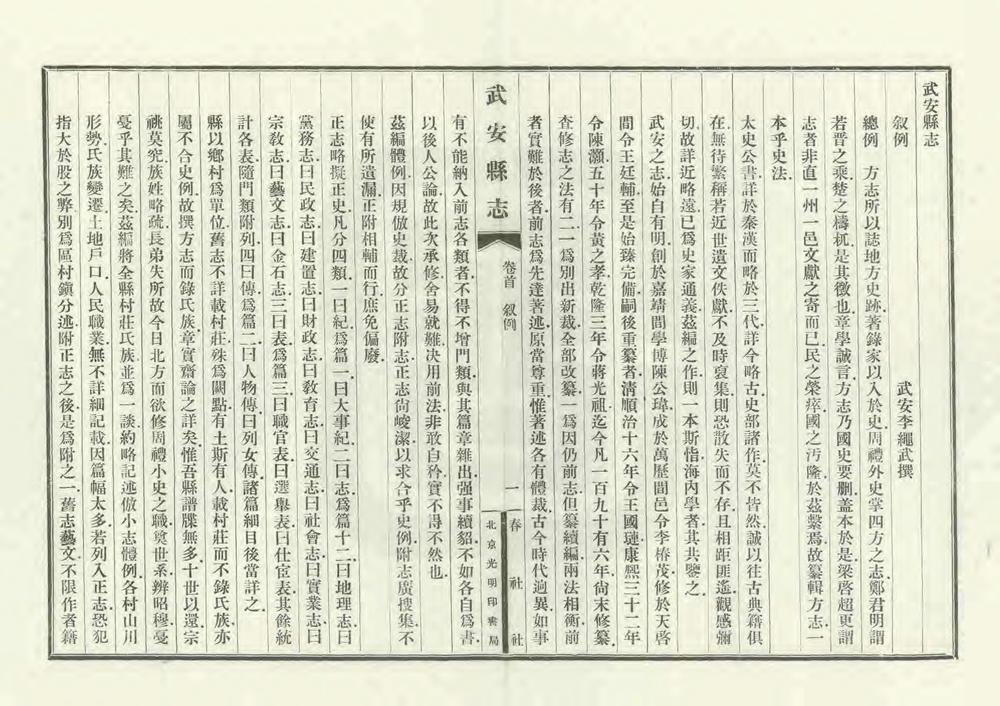 武安縣志
敘例
武安李繩武撰
總例　方志所以誌地方史跡．著錄家以入於史．周禮外史掌四方之志．鄭君明謂
若晋之乘楚之檮杌．是其徵也．章學誠言．方志乃國史要删．蓋本於是．梁啓超更謂
志者非直一州一邑文獻之寄而已．民之榮瘁．國之汚隆．於茲繫焉．故纂輯方志．一
本乎史法．
太史公書．詳於秦漢而略於三代．詳今略古．史部諸作．莫不皆然．誠以往古典籍俱
在．無待繁稱．若近世遺文佚獻．不及時裒集．則恐散失而不存．且相距匪遙．觀感彌
切．故詳近略遠．已爲史家通義．茲編之作．則一本斯恉．海內學者．其共鑒之．
武安之志．始自有明．創於嘉靖間學博陳公瑋．成於萬歷間邑令李椿茂．修於天啓
間令王廷輔．至是始臻完備．嗣後重纂者．淸順治十六年令王國璉．康熙三十二年
令陳灝．五十年令黃之孝．乾隆三年令蔣光祖．迄今凡一百九十有六年．尙未修纂．
查修志之法有二．一爲別出新裁．全部改纂．一爲因仍前志．但纂續編．兩法相衡．前
者實難於後者．前志爲先達著述．原當尊重．惟著述各有體裁．古今時代逈異．如事
武安縣志
卷首　敘例
一
春社社
北京光明印書局
有不能納入前志各類者．不得不增門類．與其篇章雜出．强事續貂．不如各自爲書．
以後人公論．故此次承修．舍易就難．决用前法．非敢自矜．實不得不然也．
茲編體例．因規倣史裁．故分正志附志．正志尙峻潔．以求合乎史例．附志廣搜集．不
使有所遺漏．正附相輔而行．庶免偏廢．
正志略擬正史．凡分四類．一曰紀．爲篇一．曰大事紀．二曰志．爲篇十二．曰地理志．曰
黨務志．曰民政志．曰建置志．曰財政志．曰敎育志．曰交通志．曰社會志．曰實業志．曰
宗敎志．曰藝文志．曰金石志．三曰表．爲篇三．曰職官表．曰選舉表．曰仕宦表．其餘統
計各表．隨門類附列．四曰傳．爲篇二．曰人物傳．曰列女傳．諸篇細目後當詳之．
縣以鄕村爲單位．舊志不詳載村莊．殊爲闕點．有土斯有人．載村莊而不錄氏族．亦
屬不合史例．故撰方志而錄氏族．章實齋論之詳矣．惟吾縣譜牒無多．十世以還．宗
祧莫究．族姓略疏．長弟失所．故今日北方而欲修周禮小史之職．奠世系．辨昭穆．戞
戞乎其難之矣．茲編將全縣村莊氏族．並爲一談．約略記述．倣小志體例．各村山川
形勢．氏族變遷．土地戶口．人民職業．無不詳細記載．因篇幅太多．若列入正志．恐犯
指大於股之弊．別爲區村鎭分述．附正志之後．是爲附之一．舊志藝文．不限作者籍